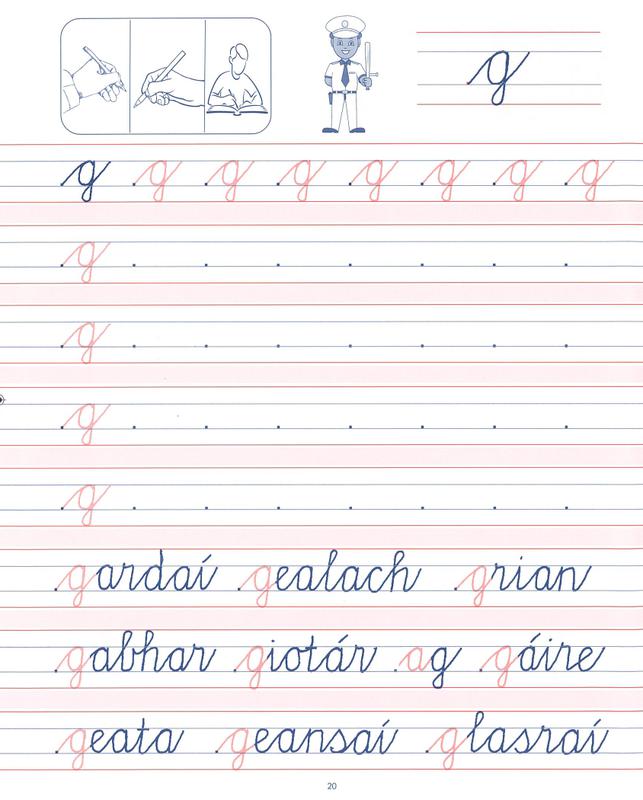 g
g g g g g g g g
g
g
g
g
gardaí gealach grian
gabhar giotár ag gáire
geata geansaí glasraí
20